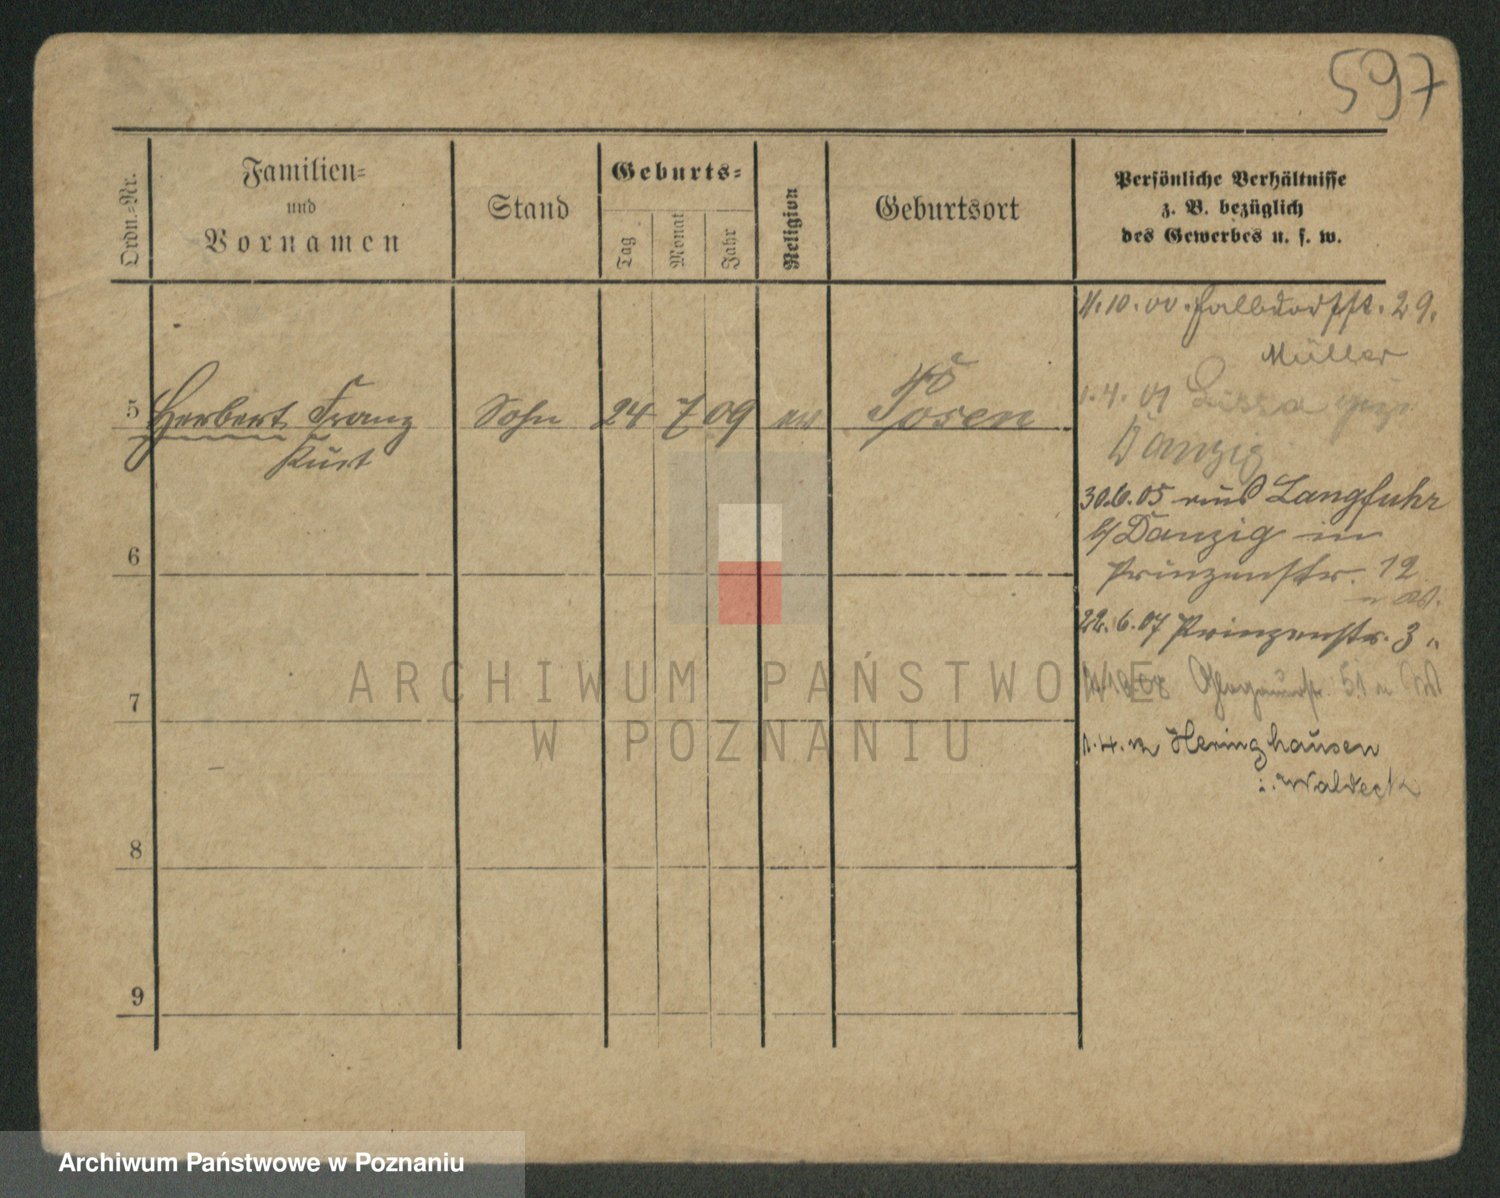 597
Ordn.-Nr.
Familien-
und
Vornamen
Stand
Geburts-
Tag
Monat
Jahr
Religion
Geburtsort
Persönliche Verhältnisse
z. B. bezüglich
des Gewerbes u. s. w.
5 Herbert Franz Sohn 24 7 09 Posen
Kurt
6
7
8
9
10. 00. 29.
Müller
1. 4. 01 Lissa
Danzig
30.6.05 aus Langfuhr
b/Danzig in
Prinzenstr. 12
22. 6. 07 Prinzenstr. 3
51
1. 4. Heringhausen
i. Waldeck
ARCHIWUM PAŃSTWOWE
W POZNANIU
Archiwum Państwowe w Poznaniu